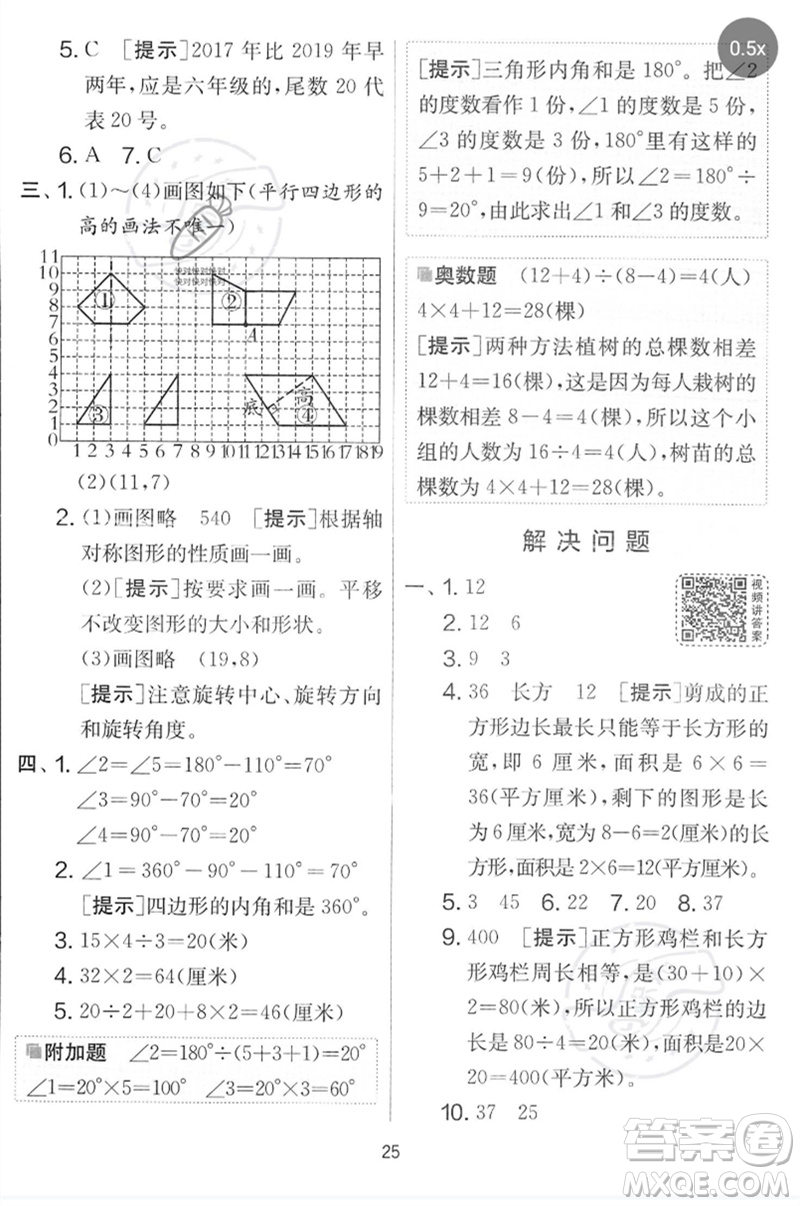 5. C [提示]2017 年比 2019 年早
两年,应是六年级的,尾数 20 代
表 20 号。
6. A 7. C
三、1. (1)～(4)画图如下(平行四边形的
高的画法不唯一)
11
10
9
8
7
6
5
4
3
2
1
0
① ② A
③ 底 高 ④
1 2 3 4 5 6 7 8 9 10 11 12 13 14 15 16 17 18 19
(2)(11,7)
2. (1)画图略 540 [提示]根据轴
对称图形的性质画一画。
(2)[提示]按要求画一画。平移
不改变图形的大小和形状。
(3)画图略 (19,8)
[提示]注意旋转中心、旋转方向
和旋转角度。
四、1. ∠2=∠5=180°-110°=70°
∠3=90°-70°=20°
∠4=90°-70°=20°
2. ∠1=360°-90°-110°=70°
[提示]四边形的内角和是 360°。
3. 15×4÷3=20(米)
4. 32×2=64(厘米)
5. 20÷2+20+8×2=46(厘米)
附加题 ∠2=180°÷(5+3+1)=20°
∠1=20°×5=100° ∠3=20°×3=60°
0.5x
[提示]三角形内角和是 180°。把∠2
的度数看作 1 份,∠1 的度数是 5 份,
∠3 的度数是 3 份,180°里有这样的
5+2+1=9(份),所以∠2=180°÷
9=20°,由此求出∠1 和∠3 的度数。
奥数题 (12+4)÷(8-4)=4(人)
4×4+12=28(棵)
[提示]两种方法植树的总棵数相差
12+4=16(棵),这是因为每人栽树的
棵数相差 8-4=4(棵),所以这个小
组的人数为 16÷4=4(人),树苗的总
棵数为 4×4+12=28(棵)。
解决问题
一、1. 12
视频讲答案
2. 12 6
3. 9 3
4. 36 长方 12 [提示]剪成的正
方形边长最长只能等于长方形的
宽,即 6 厘米,面积是 6×6=
36(平方厘米),剩下的图形是长
为 6 厘米,宽为 8-6=2(厘米)的长
方形,面积是 2×6=12(平方厘米)。
5. 3 45 6. 22 7. 20 8. 37
9. 400 [提示]正方形鸡栏和长方
形鸡栏周长相等,是(30+10)×
2=80(米),所以正方形鸡栏的边
长是 80÷4=20(米),面积是 20×
20=400(平方米)。
10. 37 25
25
答案圈
MXQE.COM